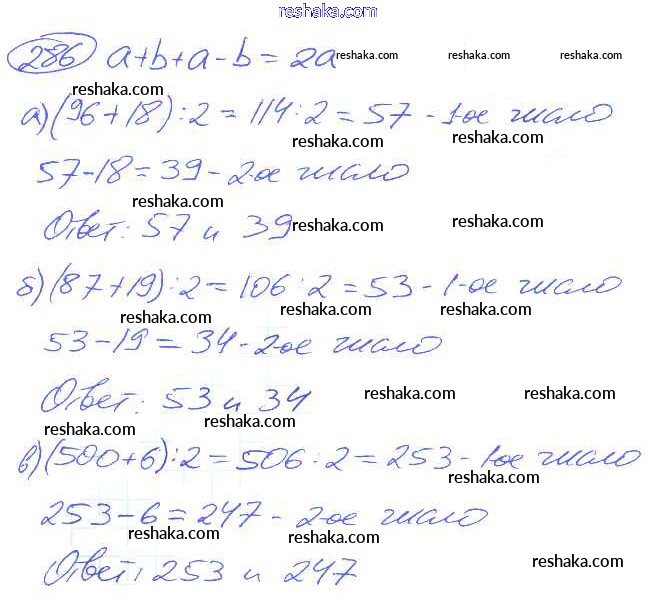 reshaka.com
286 a+b+a-b=2a reshaka.com reshaka.com reshaka.com
reshaka.com
а) (96+18):2=114:2=57 - 1-ое число
reshaka.com reshaka.com
57-18=39-2-ое число
reshaka.com
Ответ: 57 и 39 reshaka.com reshaka.com
б) (87+19):2=106:2=53-1-ое число
reshaka.com reshaka.com reshaka.com
53-19=34-2-ое число
Ответ: 53 и 34 reshaka.com reshaka.com
reshaka.com reshaka.com
в) (500+6):2=506:2=253-1-ое число
reshaka.com
253-6=247-2-ое число
reshaka.com reshaka.com
Ответ: 253 и 247 reshaka.com